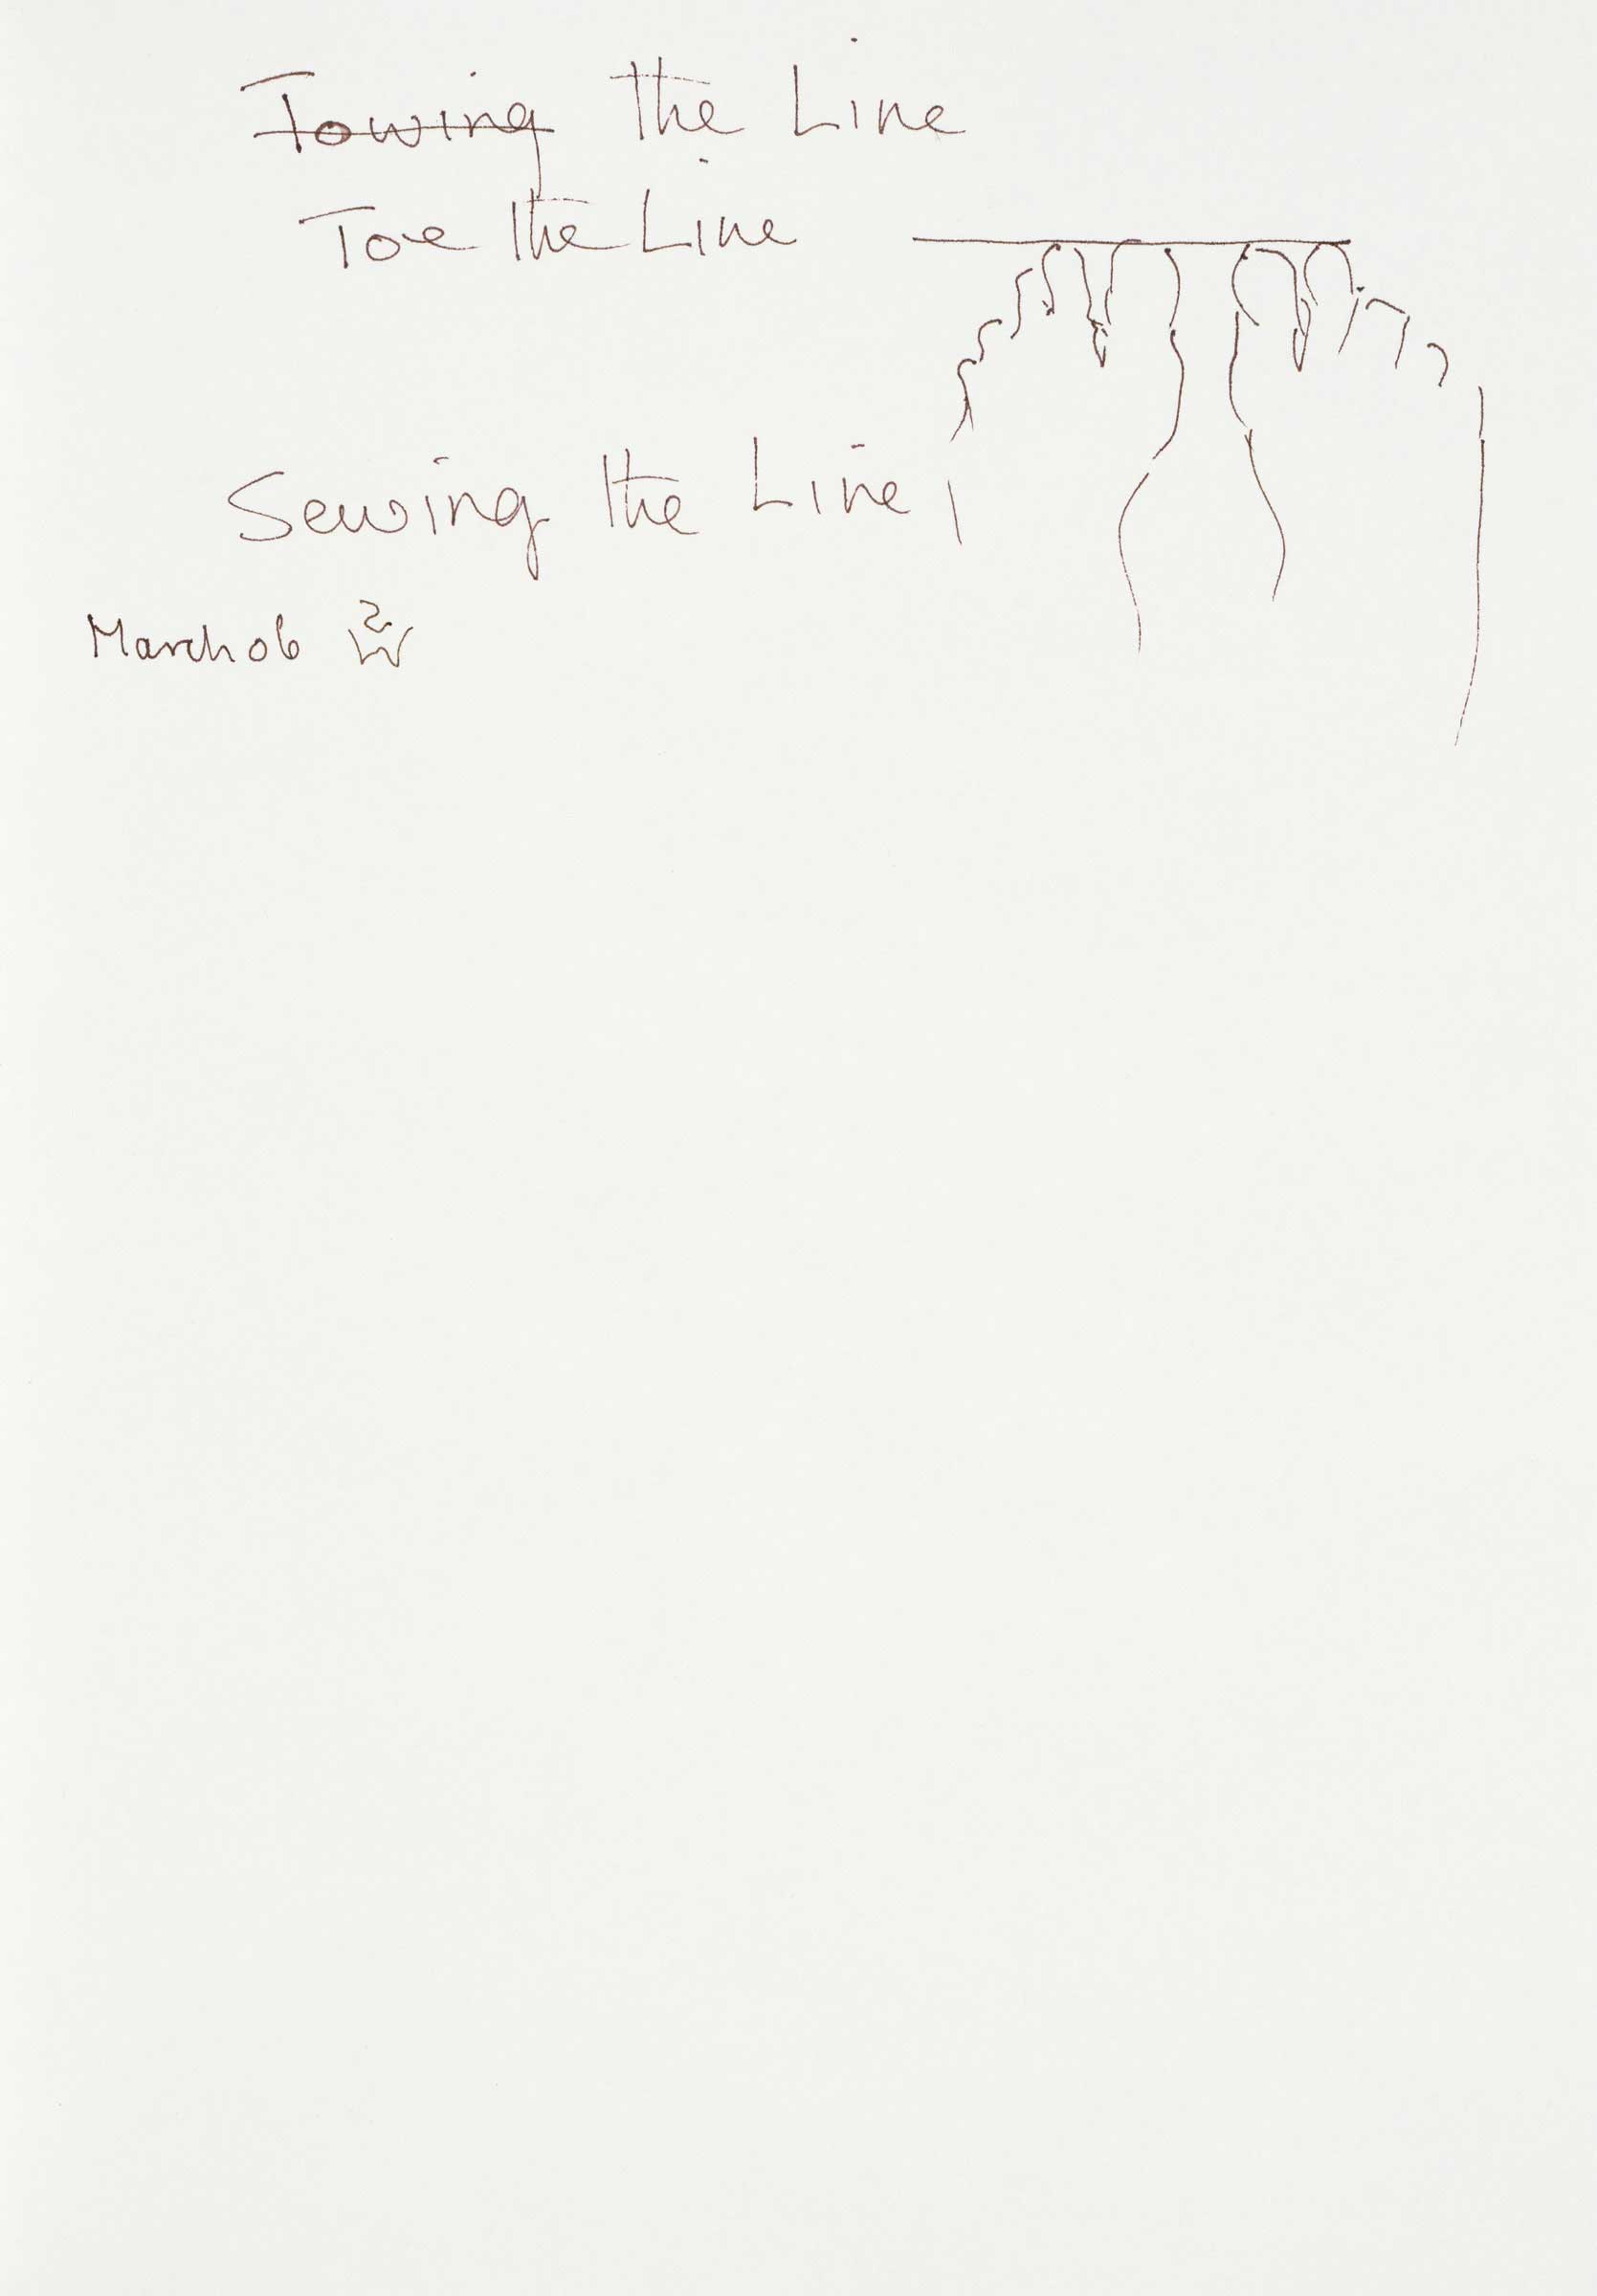 Towing the Line
Toe the Line
Sewing the Line
March 06